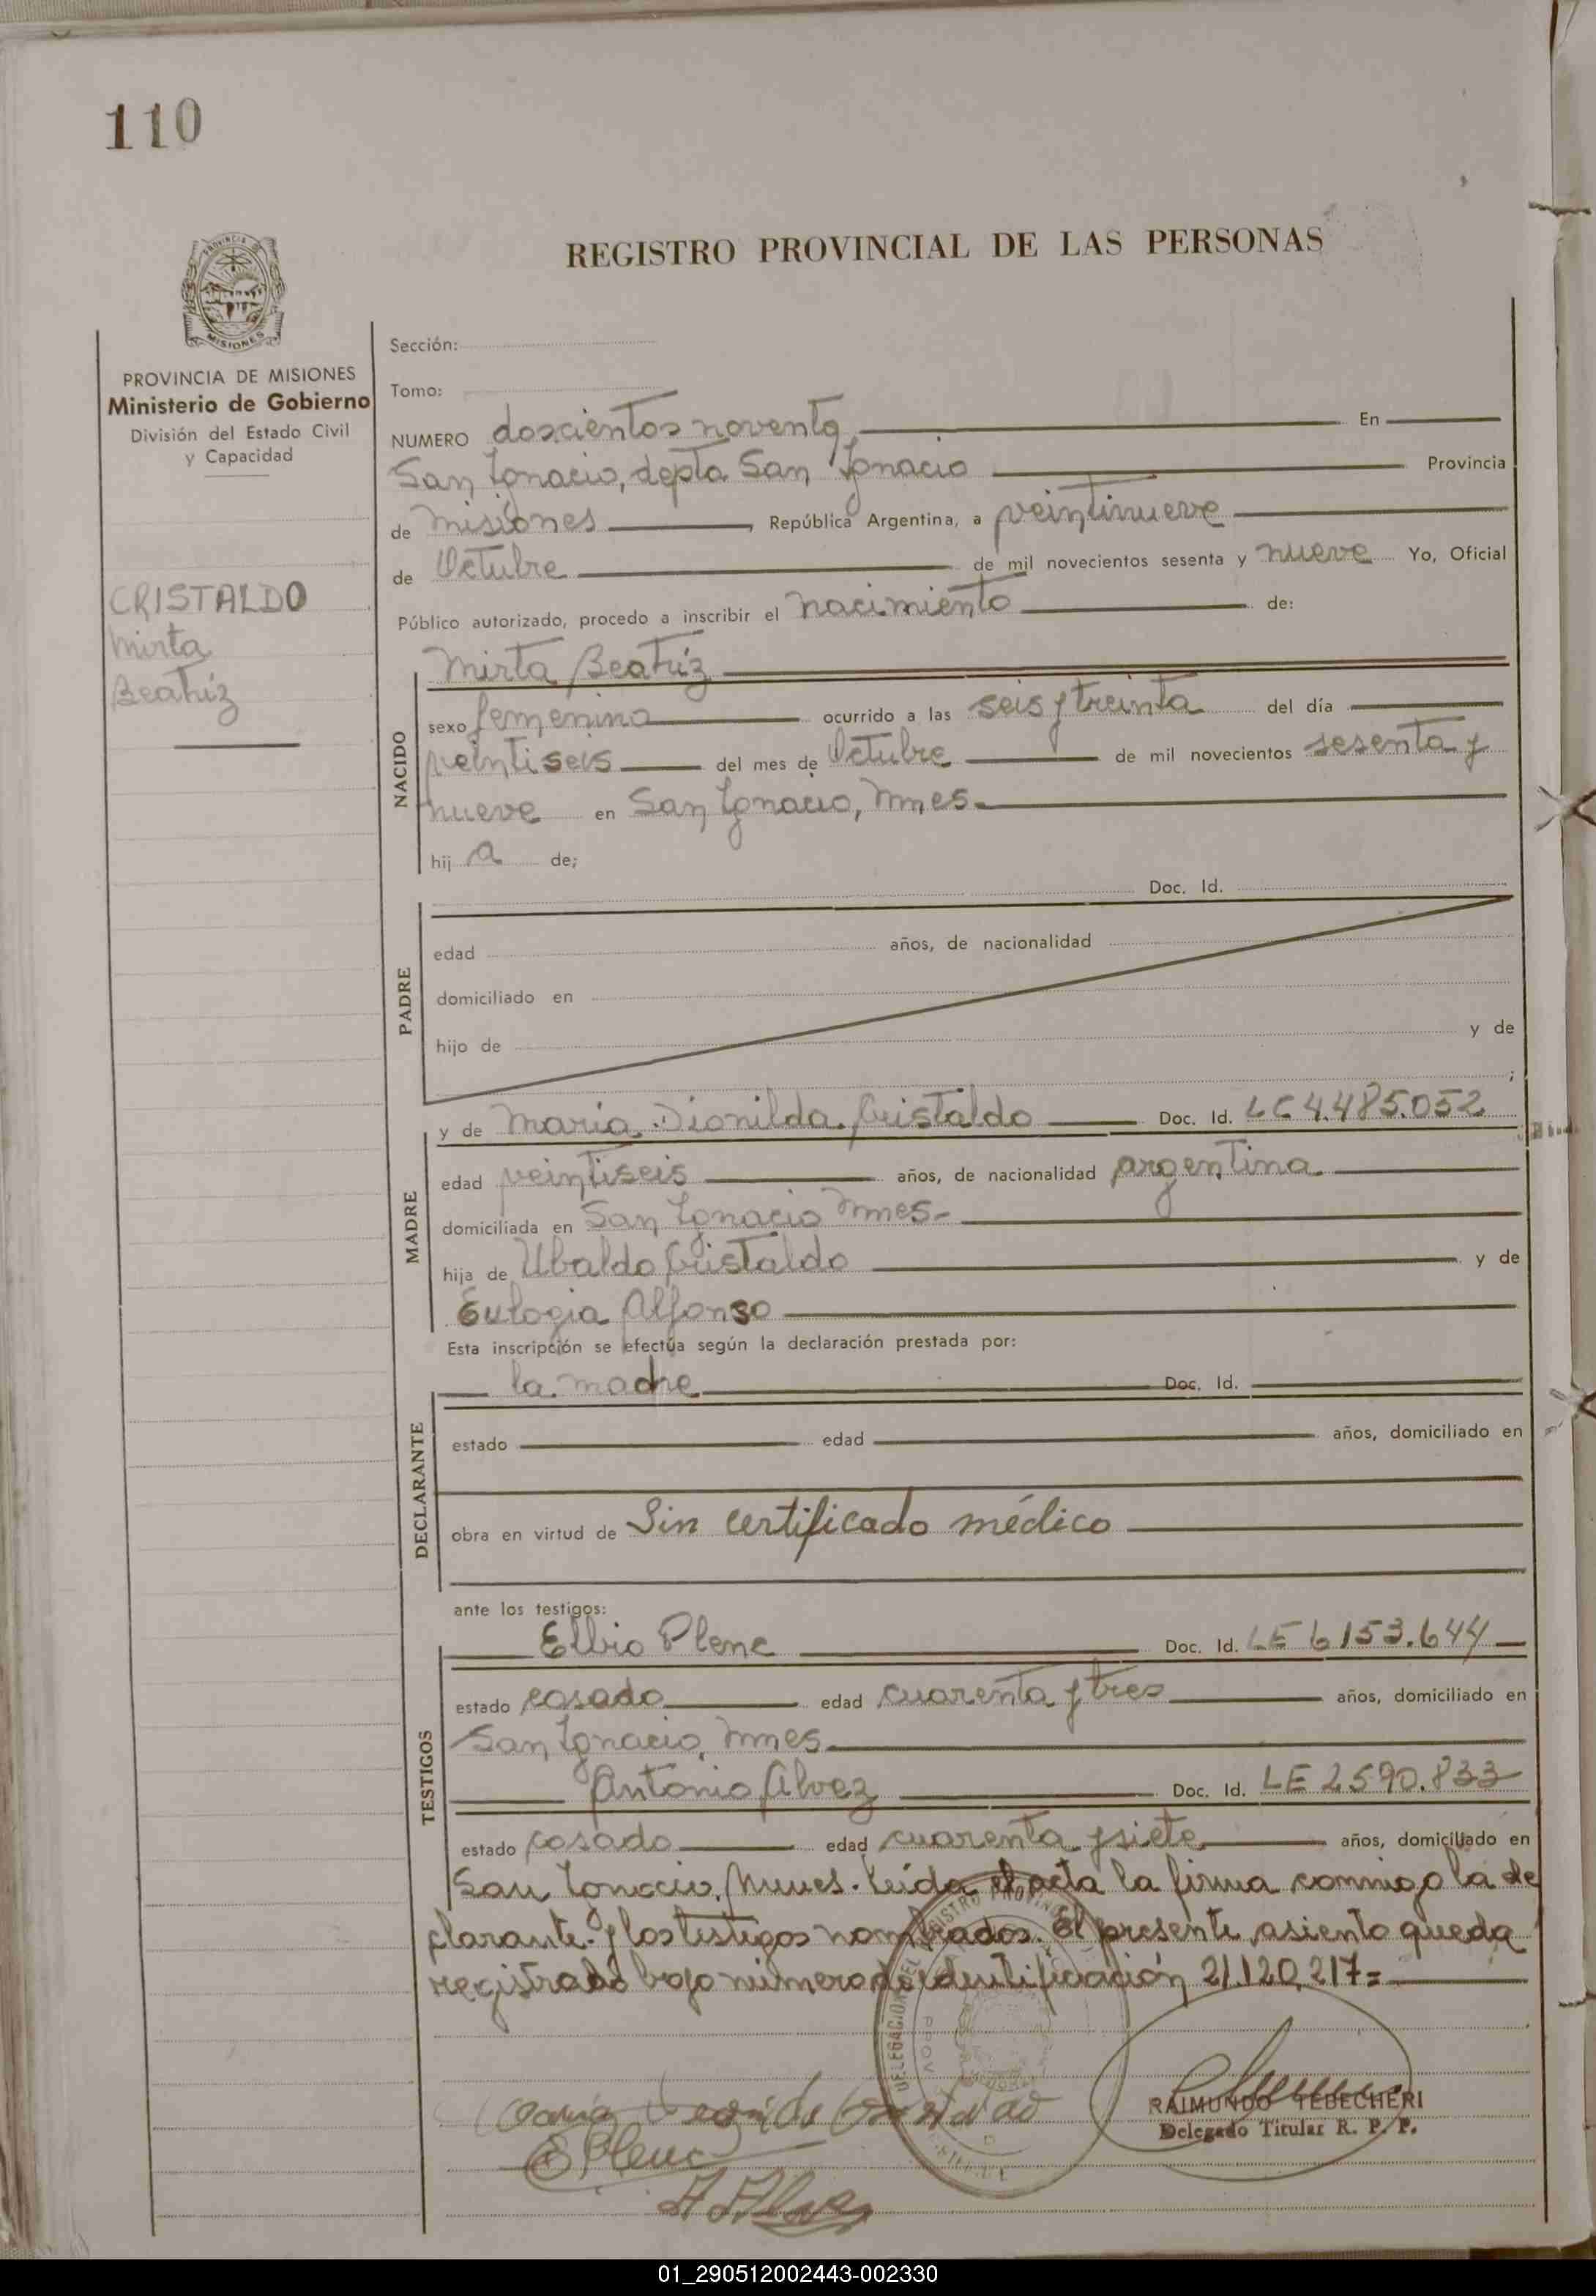 110
REGISTRO PROVINCIAL DE LAS PERSONAS
PROVINCIA DE
MISIONES
PROVINCIA DE MISIONES
Ministerio de Gobierno
División del Estado Civil
y Capacidad
CRISTALDO
Mirta
Beatriz
Sección:
Tomo:
NUMERO doscientos noventa, En
San Ignacio, depto San Ignacio Provincia
de Misiones, República Argentina, a veintinueve
de Octubre de mil novecientos sesenta y nueve Yo, Oficial
Público autorizado, procedo a inscribir el nacimiento de:
Mirta Beatriz
NACIDO
sexo femenino ocurrido a las seis y treinta del día
veintiseis del mes de Octubre de mil novecientos sesenta y
nueve en San Ignacio, Mnes.
hij a de;
Doc. Id.
PADRE
edad años, de nacionalidad
domiciliado en
hijo de y de
;
y de María Dionilda Cristaldo Doc. Id. LC 4.485.052
MADRE
edad veintiseis años, de nacionalidad argentina
domiciliada en San Ignacio Mnes.
hija de Ubaldo Cristaldo y de
Eulogia Alfonso
Esta inscripción se efectúa según la declaración prestada por:
la madre Doc. Id.
DECLARANTE
estado edad años, domiciliado en
obra en virtud de Sin certificado médico
ante los testigos:
Elbio Plenc Doc. Id. LE 6153.644
TESTIGOS
estado casado edad cuarenta y tres años, domiciliado en
San Ignacio, Mnes.
Antonio Alvez Doc. Id. LE 2590.833
estado casado edad cuarenta y siete años, domiciliado en
San Ignacio, Mnes. Leída el acta la firma conmigo la de
clarante y los testigos nombrados. El presente asiento queda
registrado bajo número de identificación 21.120.217=
DELEGACION DEL REGISTRO PROVINC
PROV
E Plenc
A Alvez
RAIMUNDO TEBECHERI
Delegado Titular R. P. P.
01_290512002443-002330